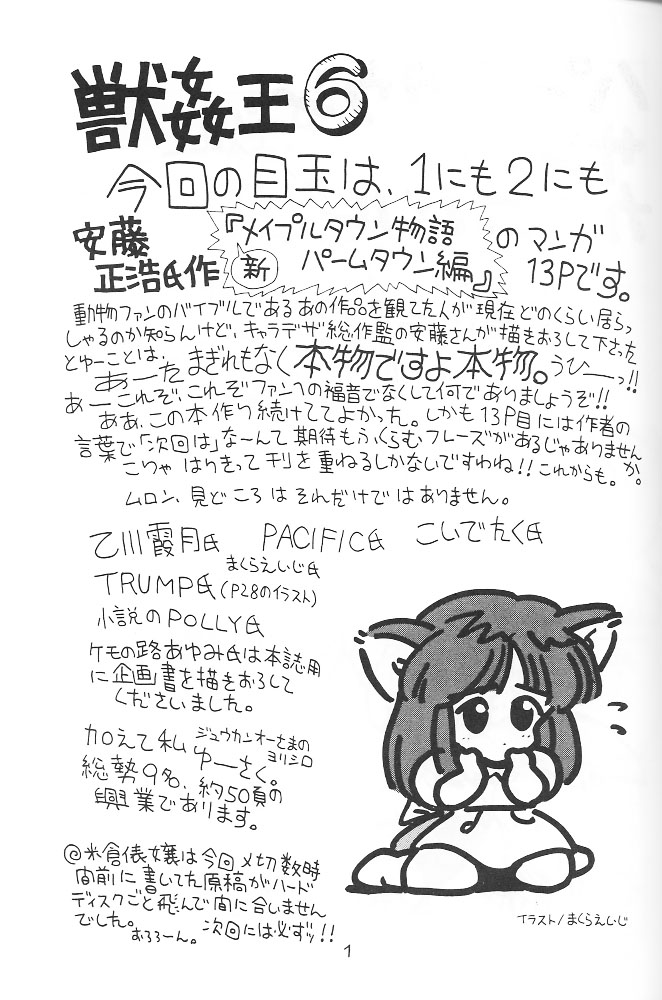 獣姦王6
今回の目玉は、1にも2にも
安藤
正浩氏作
『メイプルタウン物語
新
パームタウン編』
のマンガ
13Pです。
動物ファンのバイブルであるあの作品を観てた人が現在どのくらい居らっ
しゃるのか知らんけど、キャラデザ総作監の安藤さんが描きおろして下さった
とゆーことは、まぎれもなく本物ですよ本物。うひーっ!!
あーた
あーこれぞ、これぞファンへの福音でなくして何でありましょうぞ!!
ああ、この本作り続けててよかった。しかも13P目には作者の
言葉で「次回は」な〜んて期待もふくらむフレーズがあるじゃありません
か。
こりゃはりきって刊を重ねるしかないですわね!!これからも。
ムロン、見どころはそれだけではありません。
乙川霞月氏 PACIFIC氏 こいでたく氏
まくらえいじ氏
TRUMP氏(P28のイラスト)
小説のPOLLY氏
ケモの路あゆみ氏は本誌用
に企画書を描きおろして
くださいました。
加えて私ジュウカンオーさまの
ヨリシロ
ゆーさく。
総勢9名、約50頁の
興業であります。
@米倉俵嬢は今回〆切数時
間前に書いてた原稿がハード
ディスクごと飛んで間に合いません
でした。
おろろーん。次回には必ずッ!!
イラスト/まくらえいじ
1